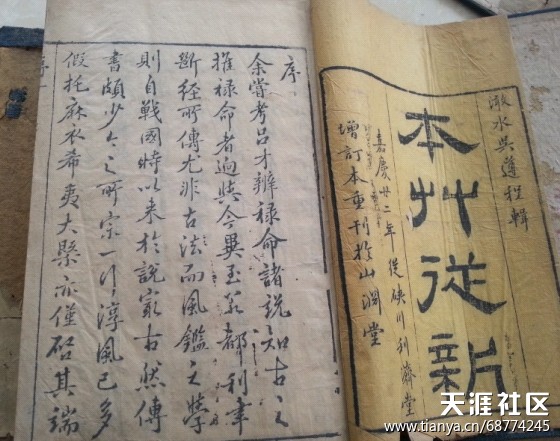 澉水吳遵程輯
本艸從新
嘉慶廿二年從硤川利濟堂
增訂本重刊於山淵堂
序
余嘗考呂才辨祿命諸說知古之
推祿命者迥與今異至若都利聿
斯經所傳尤非古法而風鑑之學
則自戰國時以來於說家古然傳
書頗少今之所宗一行淳風已多
假托麻衣希夷大槩亦僅啟其端
序
天涯社区
www.tianya.cn/68774245